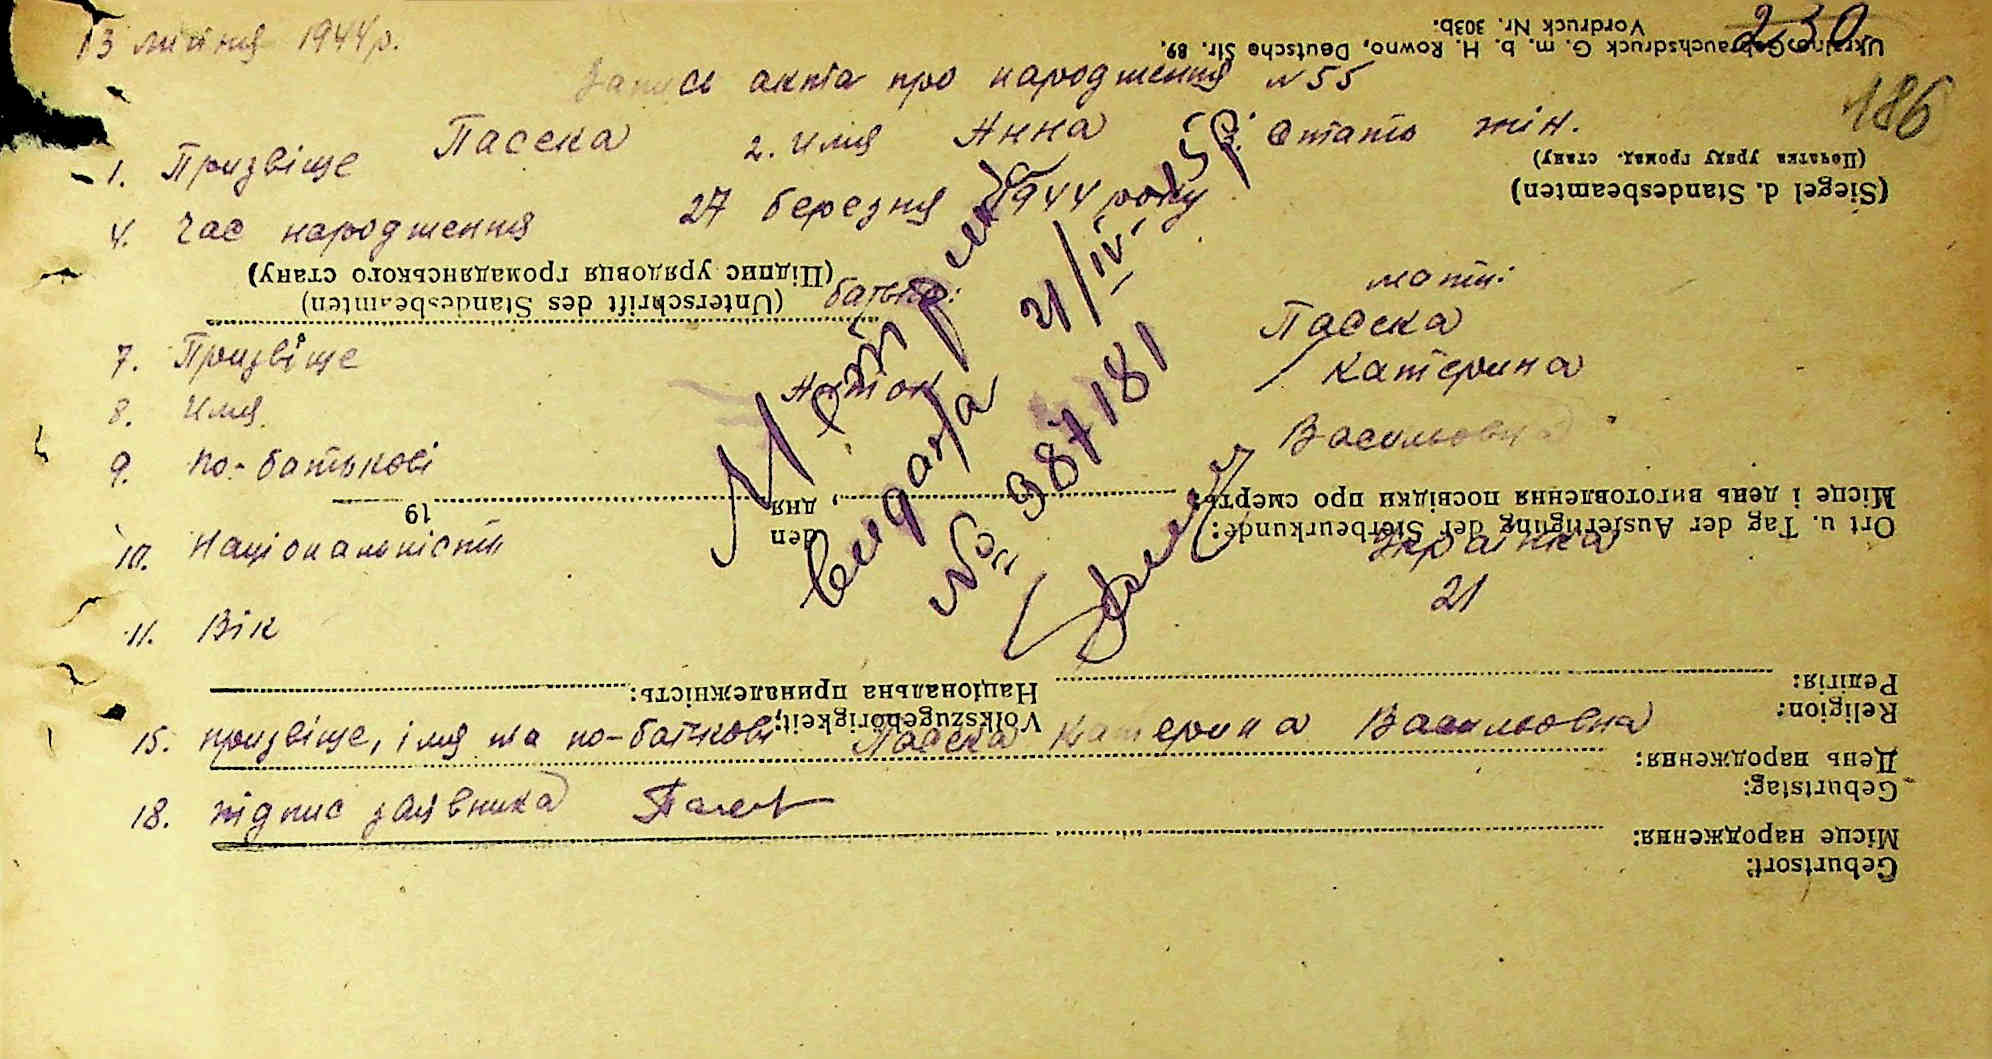 13 липня 1944 р.
230
186
Запис акта про народження N 55
1. Призвіще Пасека 2. Имя Анна 3. Стать жін.
4. Час народження 27 березня 1944 року
батько: мати:
7. Призвіще Пасека
8. Имя Антон Катерина
9. по-батькові Васильовна
10. Національність Українка
11. Вік 21
15. призвіще, імя та по-баткові Пасека Катерина Васильовна
18. підпис заявника
Метрика
видата 21/IV 5 р.
No 987181
Ukraine Gebrauchsdruck G. m. b. H. Rowno, Deutsche Str. 89.
Vordruck Nr. 303b.
(Siegel d. Standesbeamten)
(Печатка уряду громад. стану)
(Unterschrift des Standesbeamten)
(Підпис урядовця громадянського стану)
Ort u. Tag der Ausfertigung der Sterbeurkunde:
Місце і день виготовлення посвідки про смерть:
den
, дня 19
Religion:
Релігія:
Volkszugehörigkeit:
Національна приналежність:
Geburtstag:
День народження:
Geburtsort:
Місце народження: